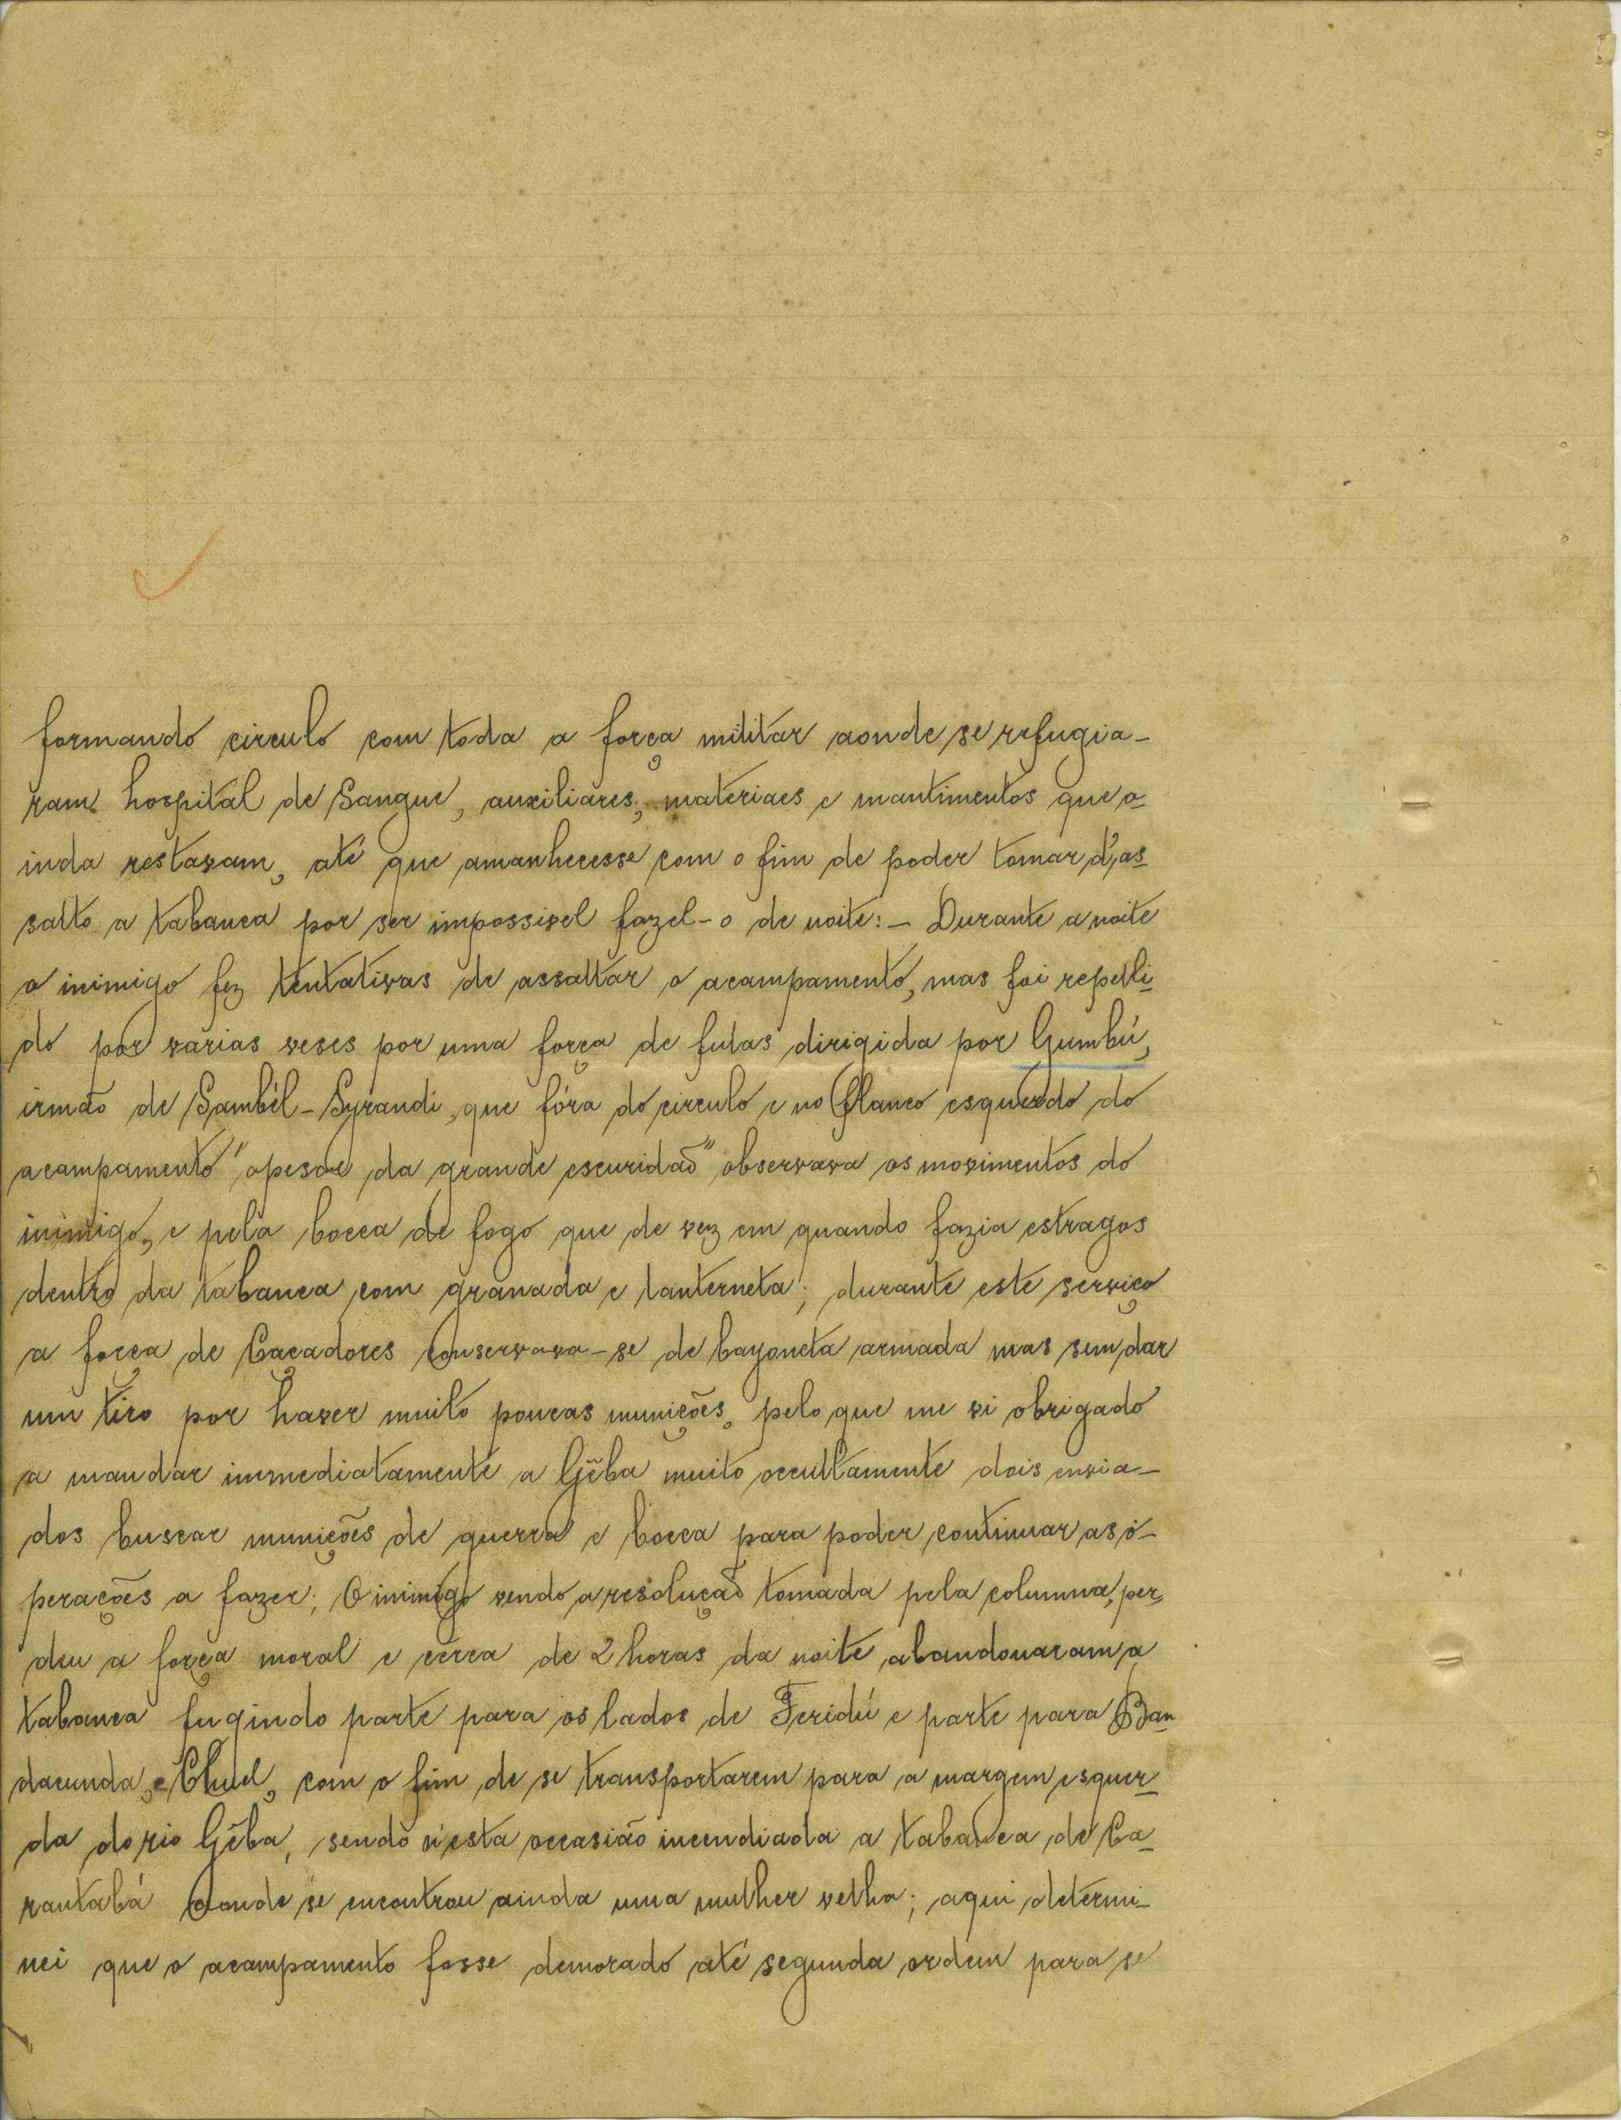 formando circulo com toda a força militar aonde se refugia-
ram hospital de Sangue, auxiliares, materiaes e mantimentos que a-
inda restavam, até que amanhecesse com o fim de poder tomar d'as-
salto a tabanca por ser impossivel fazel-o de noite:- Durante a noite
o inimigo fez tentativas de assaltar o acampamento, mas foi repelli-
do por varias veses por uma força de fulas dirigida por Gumbú,
irmão de Sambél-Syrandi, que fóra do circulo e no flanco esquerdo do
acampamento "apesar da grande escuridão" observava os movimentos do
inimigo, e pela bocca de fogo que de vez em quando fazia estragos
dentro da tabanca com granada e lanterneta; durante este serviço
a força de Caçadores conservava-se de bayoneta armada mas sem dar
um tiro por haver muito poucas munições, pelo que me vi obrigado
a mandar immediatamente a Gêba muito occultamente dois envia-
dos buscar munições de guerra e bocca para poder continuar as o-
perações a fazer; O inimigo vendo a resolução tomada pela columna, per-
deu a força moral e cêrca de 2 horas da noite abandonaram a
tabanca fugindo parte para os lados de Feridú e parte para Ban-
dacunda, e Chuel, com o fim de se transportarem para a margem esquer-
da do rio Gêba, sendo n'esta occasião incendiada a tabanca de Ca-
rantabá aonde se encontrou ainda uma mulher velha; aqui determi-
nei que o acampamento fosse demorado até segunda ordem para se